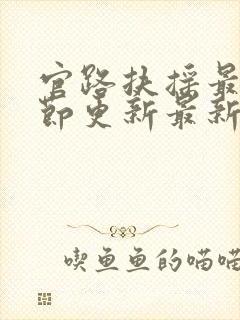 官路扶摇最
节更新最新
喫鱼鱼的喵喵